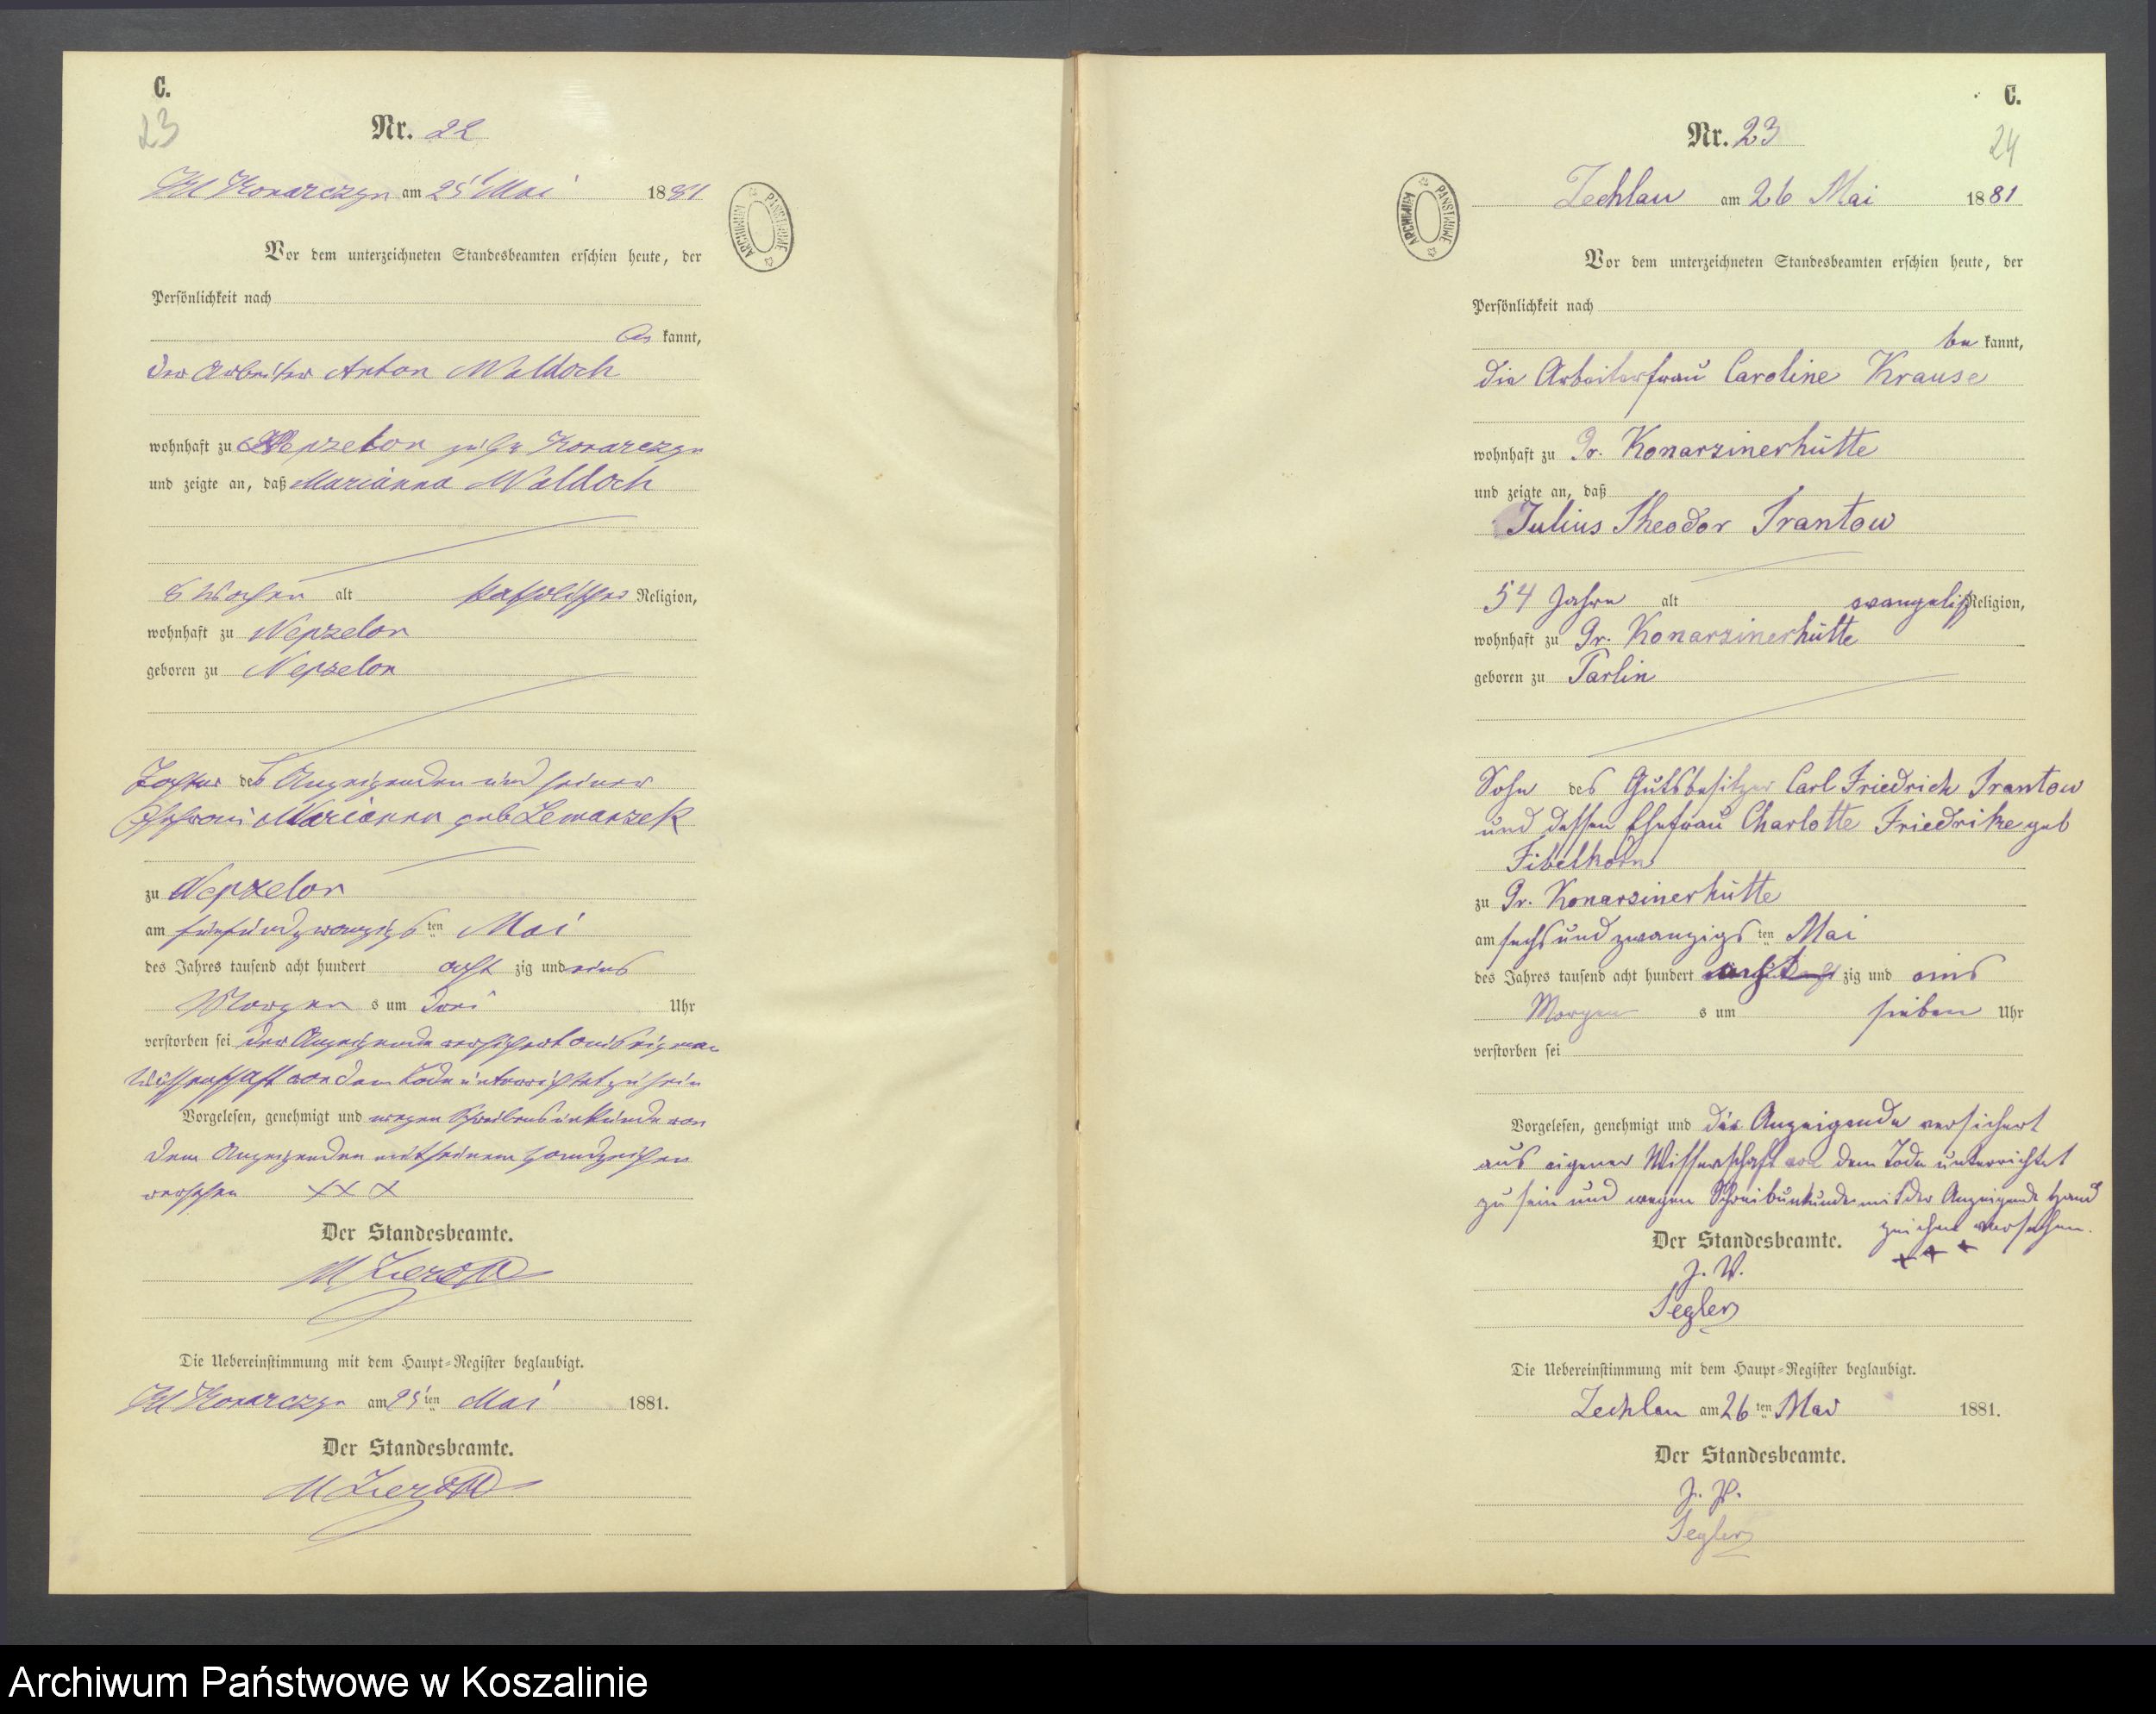 C.
23
Nr. 22
Kl Konarczyn am 25t Mai 1881
Vor dem unterzeichneten Standesbeamten erschien heute, der
Persönlichkeit nach
be kannt,
der Arbeiter Anton Woldoch
wohnhaft zu Nepzelon Konarczyn
und zeigte an, daß Marianna Woldoch
8 Wochen alt katholischer Religion,
wohnhaft zu Nepzelon
geboren zu Nepzelon
Tochter des Anzeigenden und seiner
Ehefrau Marianna geb Lemanzek
zu Nepzelon
am fünfundzwanzigs ten Mai
des Jahres tausend acht hundert acht zig und eins
Morgen s um drei Uhr
verstorben sei der Anzeigende versichert aus eigener
Wissenschaft von dem Tode unterrichtet zu sein
Vorgelesen, genehmigt und wegen Schreibensunkunde von
dem Anzeigenden mit seinem Handzeichen
versehen XXX
Der Standesbeamte.
Die Uebereinstimmung mit dem Haupt-Register beglaubigt.
Kl Konarczyn am 25 ten Mai 1881.
Der Standesbeamte.
ARCHIWUM PAŃSTWOWE
C.
24
Nr. 23
Zechlau am 26 Mai 1881
Vor dem unterzeichneten Standesbeamten erschien heute, der
Persönlichkeit nach
be kannt,
die Arbeiterfrau Caroline Krause
wohnhaft zu Gr. Konarzinerhütte
und zeigte an, daß
Julius Theodor Trantow
54 Jahre alt evangelisch Religion,
wohnhaft zu Gr. Konarzinerhütte
geboren zu Parlin
Sohn des Gutsbesitzer Carl Friedrich Trantow
und dessen Ehefrau Charlotte Friedrike geb
Fibelkorn
zu Gr. Konarzinerhütte
am sechsundzwanzigs ten Mai
des Jahres tausend acht hundert acht zig und eins
Morgen s um sieben Uhr
verstorben sei
Vorgelesen, genehmigt und die Anzeigende versichert
aus eigener Wissenschaft von dem Tode unterrichtet
zu sein und wegen Schreibunkunde mit der Anzeigende Hand
zeichen versehen.
Der Standesbeamte. +++
J. V.
Segler
Die Uebereinstimmung mit dem Haupt-Register beglaubigt.
Zechlau am 26 ten Mai 1881.
Der Standesbeamte.
J. V.
Segler
ARCHIWUM PAŃSTWOWE
Archiwum Państwowe w Koszalinie